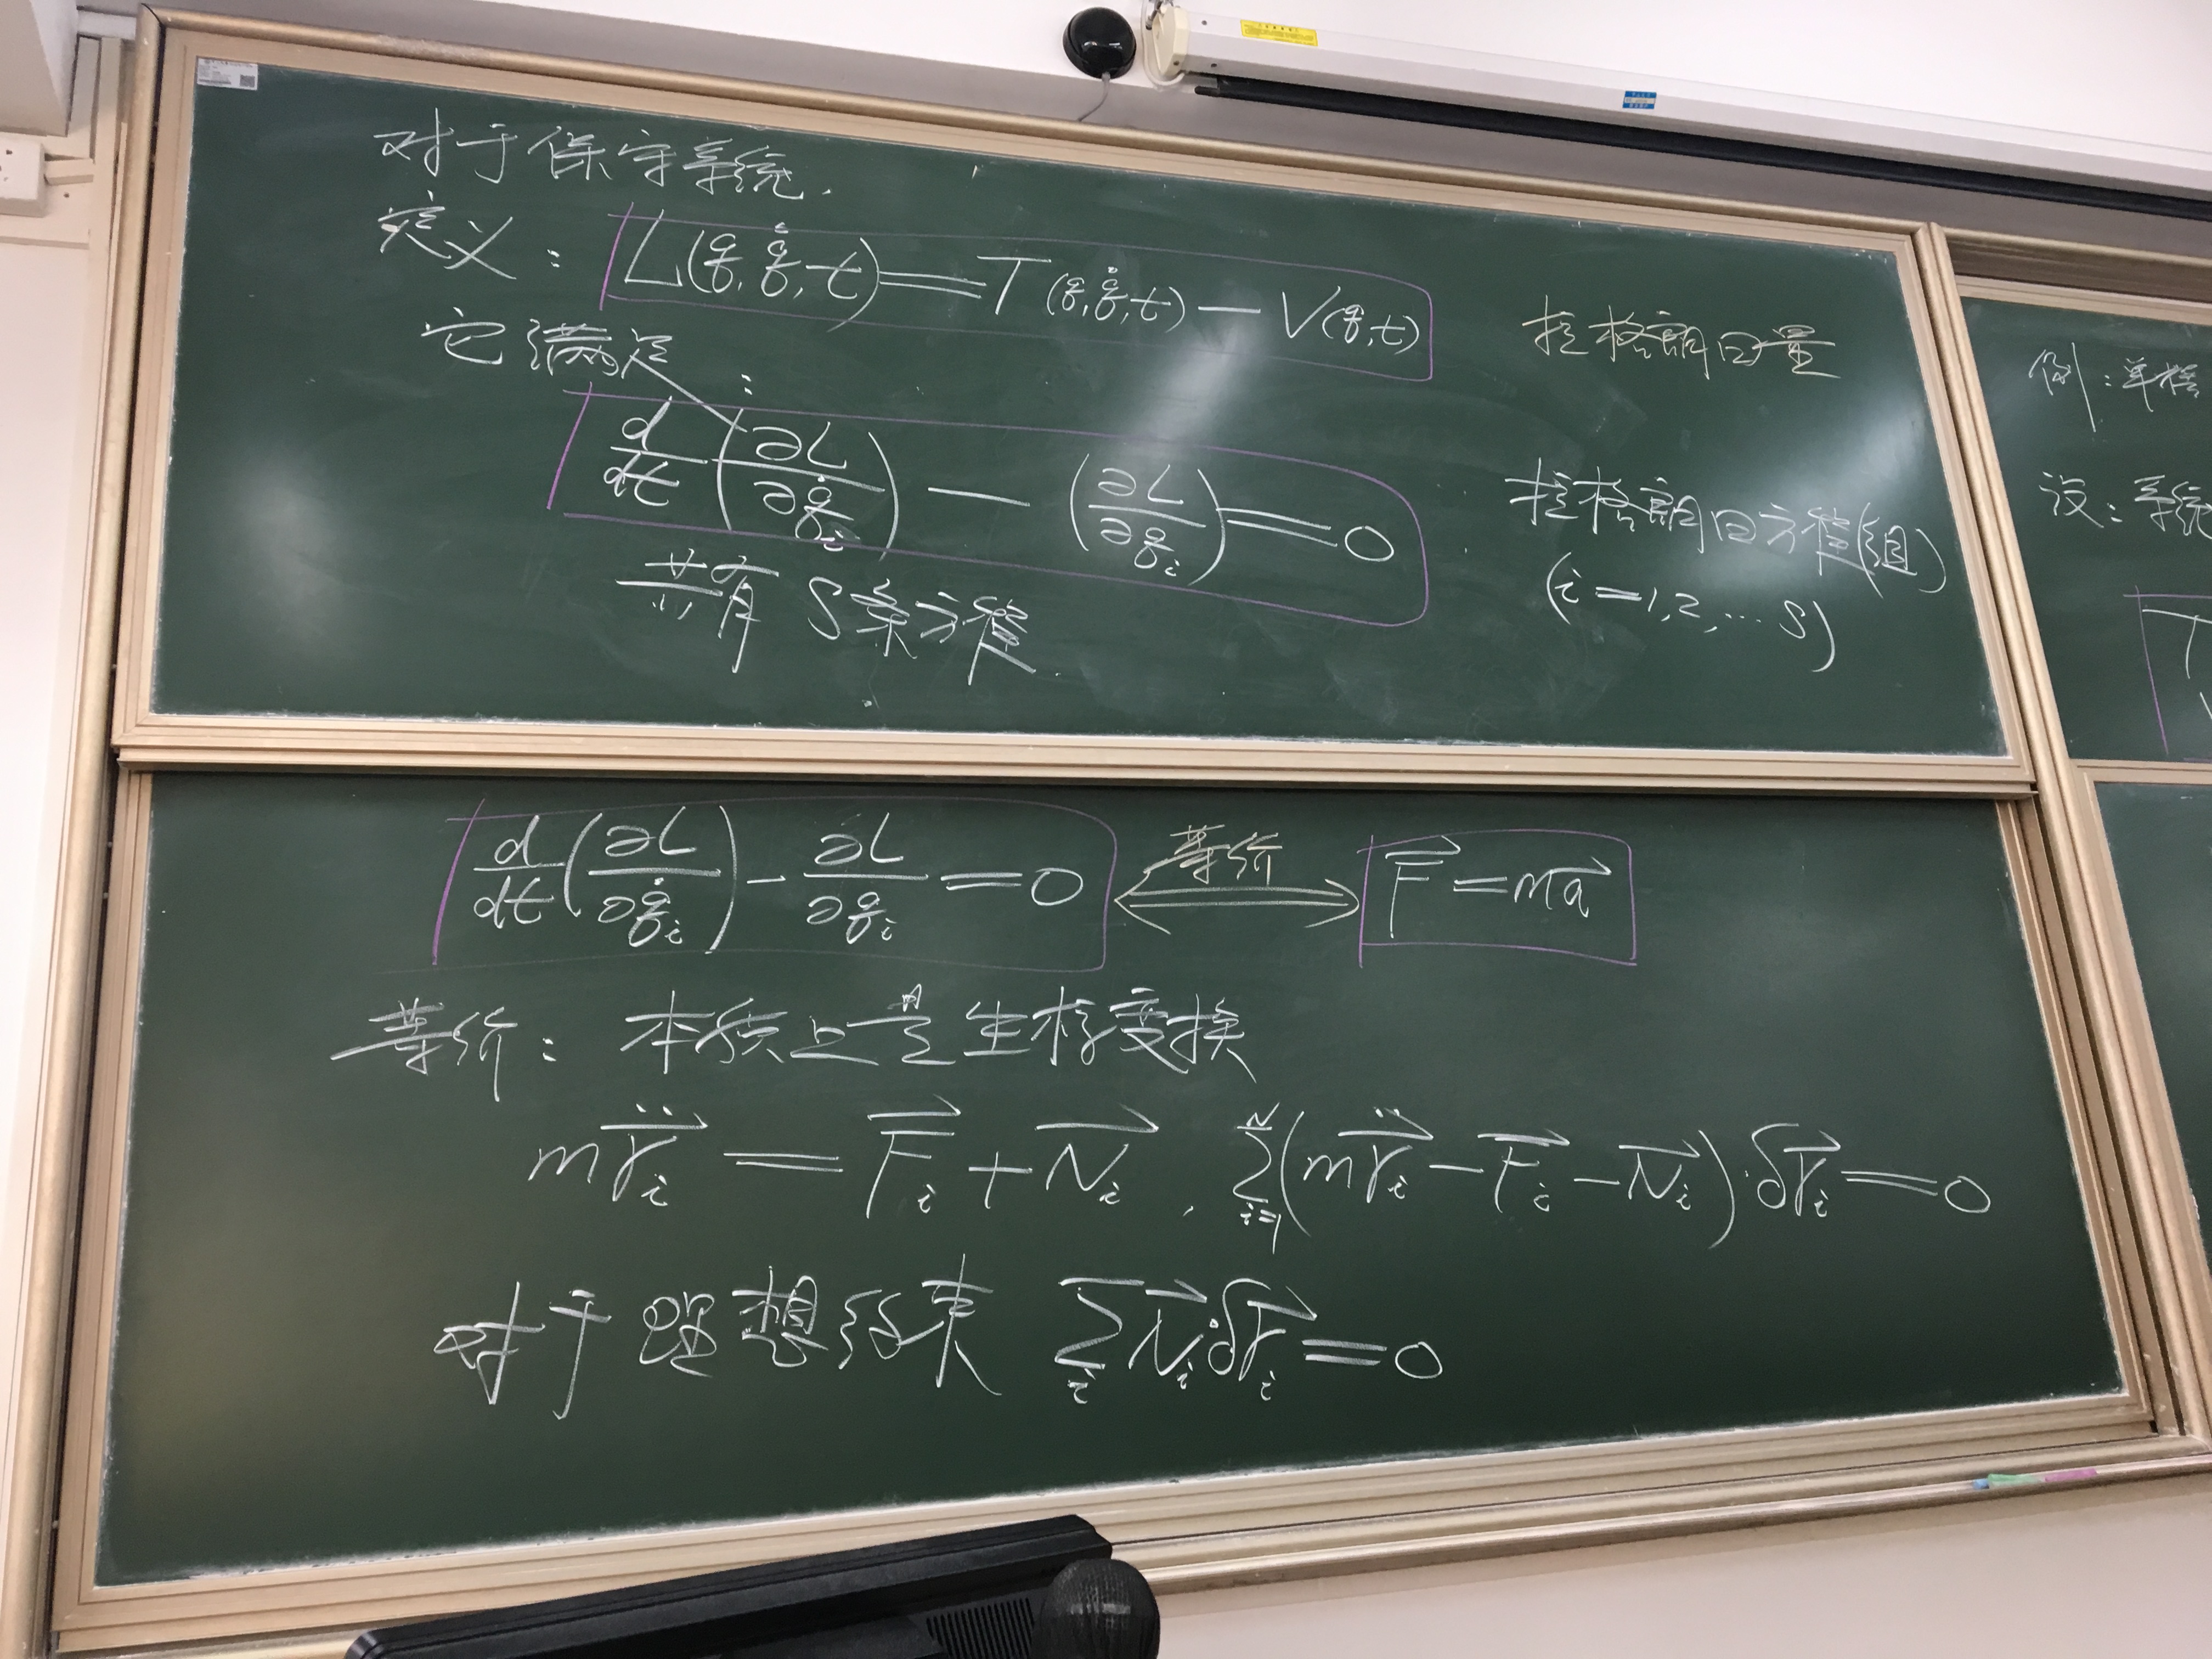 对于保守系统.
定义: L(q, q̇, t) = T(q, q̇, t) − V(q, t) 拉格朗日量
它满足:
d/dt (∂L/∂q̇ᵢ) − (∂L/∂qᵢ) = 0 拉格朗日方程(组)
(i = 1, 2, ... S)
共有 S条方程
d/dt (∂L/∂q̇ᵢ) − ∂L/∂qᵢ = 0 等价 ⟺ F⃗ = ma⃗
等价: 本质上是坐标变换
m r⃗̈ᵢ = F⃗ᵢ + N⃗ᵢ , ∑ᵢ₌₁ᴺ (m r⃗̈ᵢ − F⃗ᵢ − N⃗ᵢ) · δr⃗ᵢ = 0
对于理想约束 ∑ᵢ N⃗ᵢ · δr⃗ᵢ = 0
例: 单摆
设: 系统
T